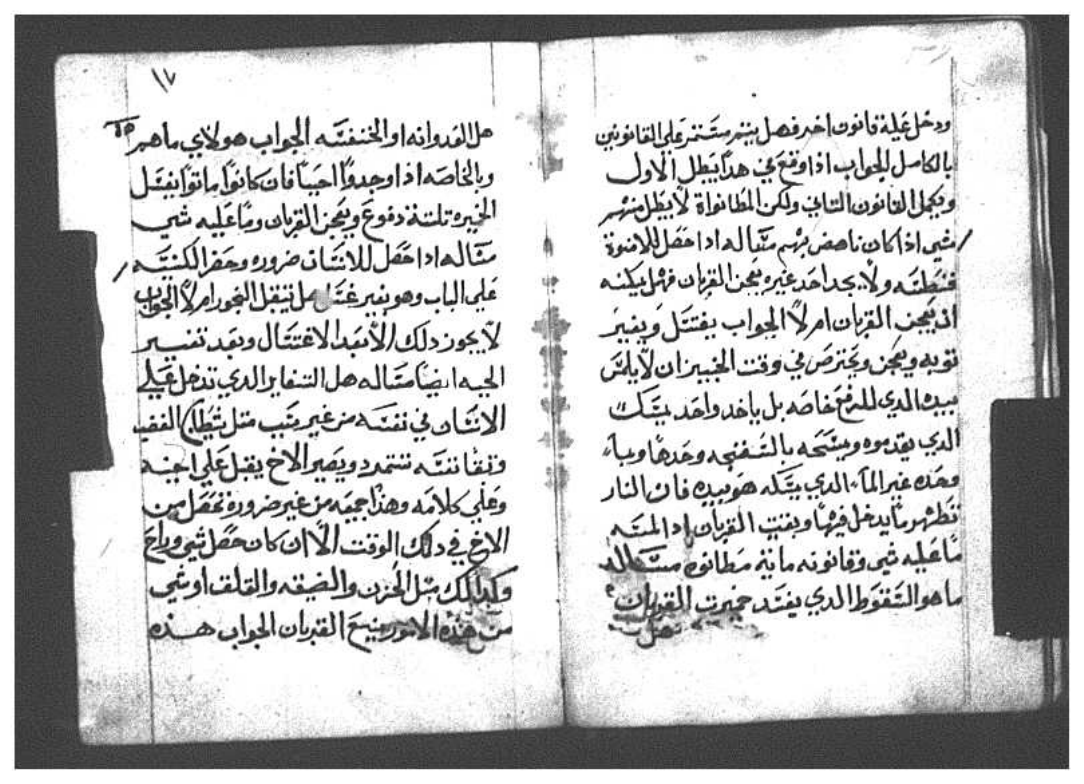 ودخل عليه قانون اخر فهل يستمر على القانونين
بالكامل الجواب اذا وقع في هدا يبطل الاول
ويكمل القانون التاني ولكن المطانواة لا يبطل منهم
شي اذا كان ناهض بهم مساله ادا حصل للاخوة
ولا يجد احد غيره يعجن القربان فهل يمكنه
ان يعجن القربان ام لا الجواب يغتسل ويغير
توبه ويعجن ويحترص في وقت الخبيز ان لا يلمس
بيده الدي للمرفع خاصه بل ياخد واحد يمسك
الدي يقدموه ويمسحه بالسفنجه وحدها وبماء
وحده غير الماء الدي يمسكه هو بيده فان النار
تطهر ما يدخل فيها وبقيت القربان ادا لمسه
ما عليه شي وقانونه ماية مطانوه مساله
ما هو السقوط الدي يفسد خميرت القربان
هل
١٧
هل الفدوانه او الخنفسه الجواب هولاي ما هم
وبالخاصه اذا وجدوا احيا فان كانوا ماتوا يغسل
الخيره تلتة دفوع ويعجن القربان وما عليه شي
مساله ادا حصل للانسان ضروره وحضر الكنيسه
على الباب وهو بغير غسل هل يقبل البخور ام لا الجواب
لا يجوز دلك الا بعد الاغتسال وبعد تفسير
الحيه ايضا مساله هل التنفاير الدي تدخل على
الانسان في نفسه من غير سبب متل
نفسه تتمرد ويصير الاخ يقبل على
وعلى كلامه وهذا جميعه من غير ضروره تحصل من
الاخ في دلك الوقت الا ان كان حصل شي وراح
وكدالك متل الحزن والضيقه والقلق او شي
من هذه الامور القربان الجواب هذه